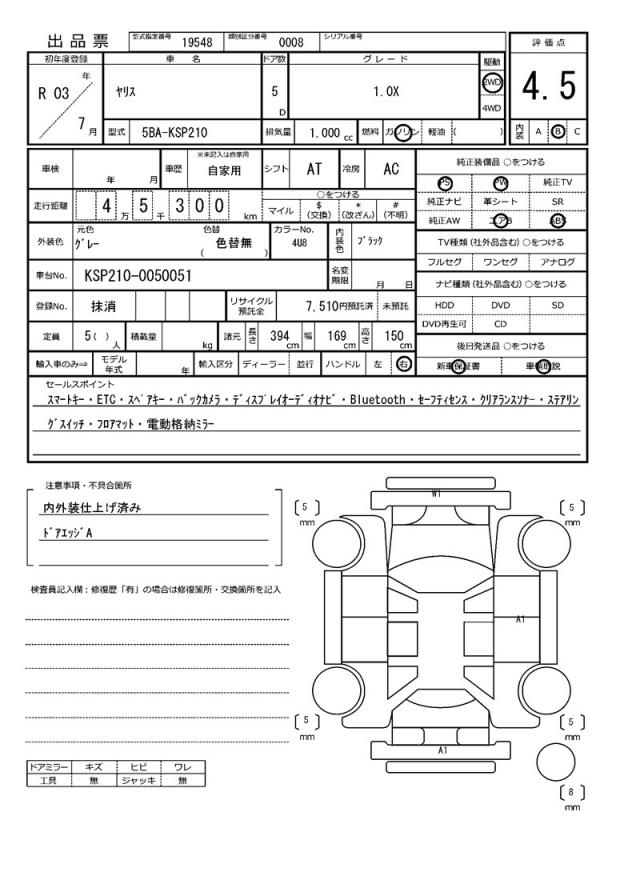 出品票 型式指定番号 19548 類別区分番号 0008 シリアル番号
評価点
4.5
内装 A B C
初年度登録 車名 ドア数 グレード 駆動
R 03 年 7 月 ヤリス 5 D 1.0X 2WD 4WD
型式 5BA-KSP210 排気量 1.000 cc 燃料 ガソリン 軽油 ( )
車検 年 月 車歴 ※未記入は自家用 自家用 シフト AT 冷房 AC
走行距離 4 万 5 千 3 0 0 km ○をつける
マイル $(交換) *(改ざん) #(不明)
外装色 元色 グレー 色替 ( 色替無 ) カラーNo. 4U8 内装色 ブラック
車台No. KSP210-0050051 名変期限 月 日
登録No. 抹消 リサイクル預託金 7,510円預託済 未預託
定員 5( ) 人 積載量 kg 諸元 長さ 394 cm 幅 169 cm 高さ 150 cm
輸入車のみ⇒ モデル年式 年 輸入区分 ディーラー 並行 ハンドル 左 右
純正装備品 ○をつける
PS PW 純正TV
純正ナビ 革シート SR
純正AW エアB ABS
TV種類 (社外品含む) ○をつける
フルセグ ワンセグ アナログ
ナビ種類 (社外品含む) ○をつける
HDD DVD SD
DVD再生可 CD
後日発送品 ○をつける
新車保証書 車輌取説
セールスポイント
スマートキー・ETC・スペアキー・バックカメラ・ディスプレイオーディオナビ・Bluetooth・セーフティセンス・クリアランスソナー・ステアリン
グスイッチ・フロアマット・電動格納ミラー
注意事項・不具合箇所
内外装仕上げ済み
ドアエッジA
検査員記入欄：修復歴「有」の場合は修復箇所・交換箇所を記入
ドアミラー キズ ヒビ ワレ
工具 無 ジャッキ 無
W1
[ 5 ] mm
[ 5 ] mm
A1
[ 5 ] mm
[ 5 ] mm
A1
[ 8 ] mm